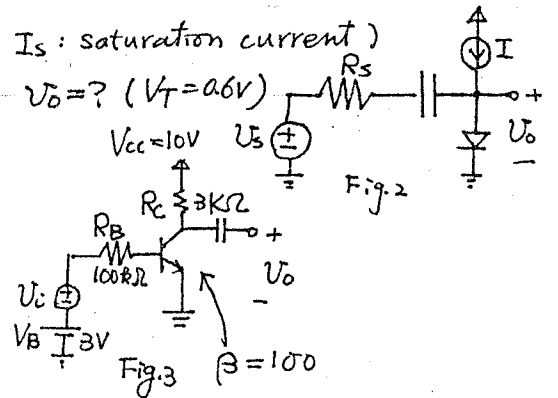 Is : saturation current )
Vo = ? ( VT = 0.6V )
Rs
I
Vs
+
Vo
−
Fig.2
Vcc = 10V
Rc 3KΩ
RB
100kΩ
+
Vo
−
Vi
VB 3V
Fig.3
β = 100